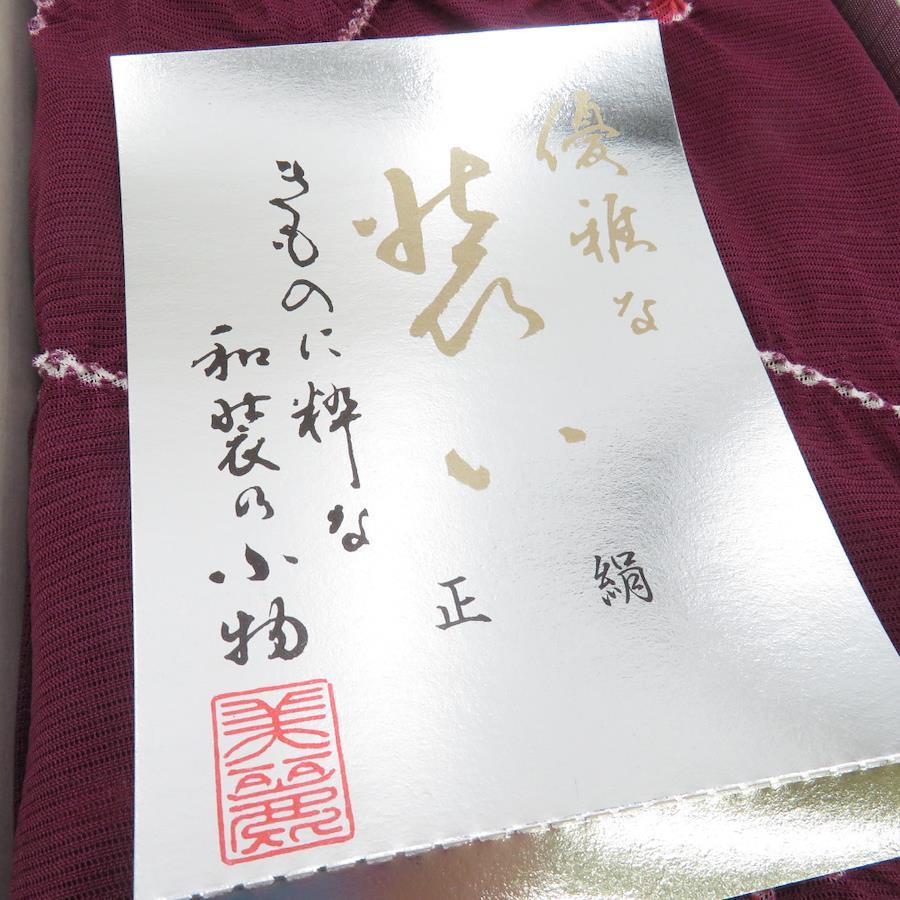 優雅な
装い
正絹
きものに粋な
和装の小物
美麗